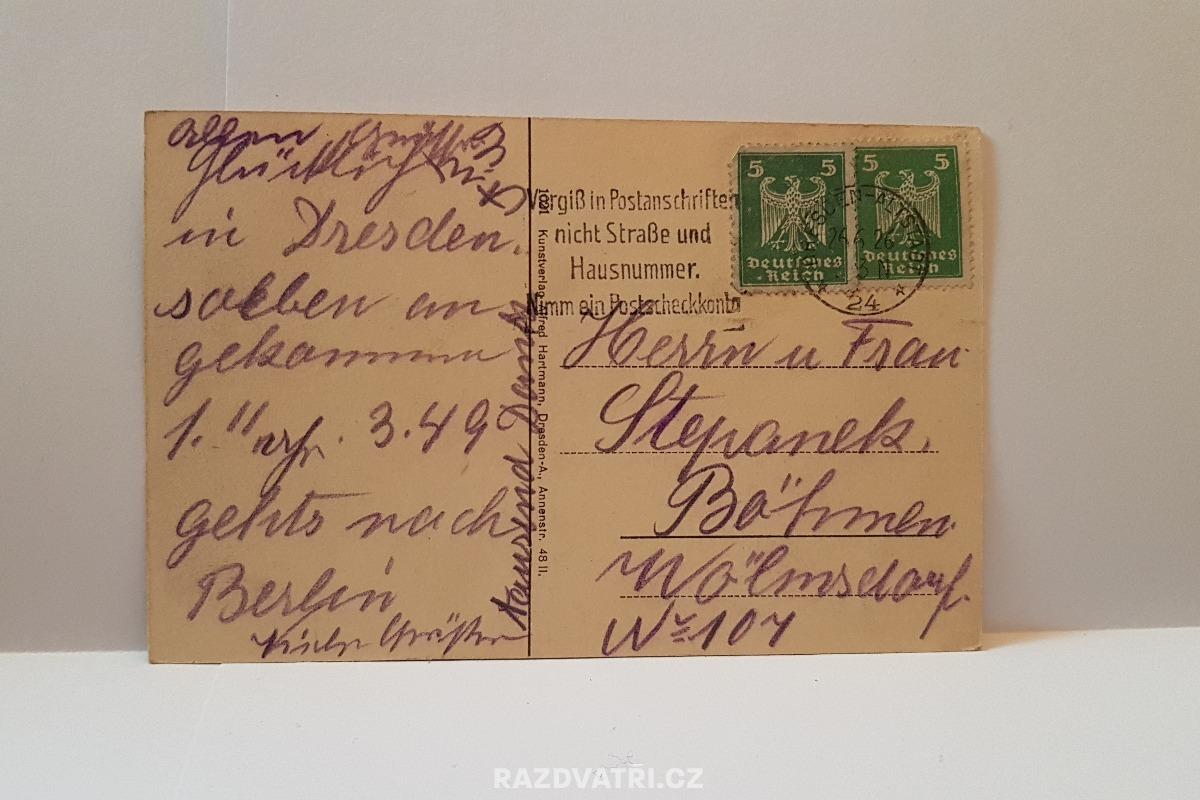 Glücklich
in Dresden.
soeben an
gekommen
1." Uhr. 3.49
gehts nach
Berlin
Viele Grüße
Tausend Dank
1021 Kunstverlag Alfred Hartmann, Dresden-A., Annenstr. 48 II.
Vergiß in Postanschriften
nicht Straße und
Hausnummer.
Nimm ein Postscheckkonto
5 5
Deutsches
Reich
5 5
Deutsches
Reich
DRESDEN-ALTSTADT
24
Herrn u Frau
Stepanek.
Böhmen
Wölmsdorf.
Nr 104
RAZDVATŘI.CZ